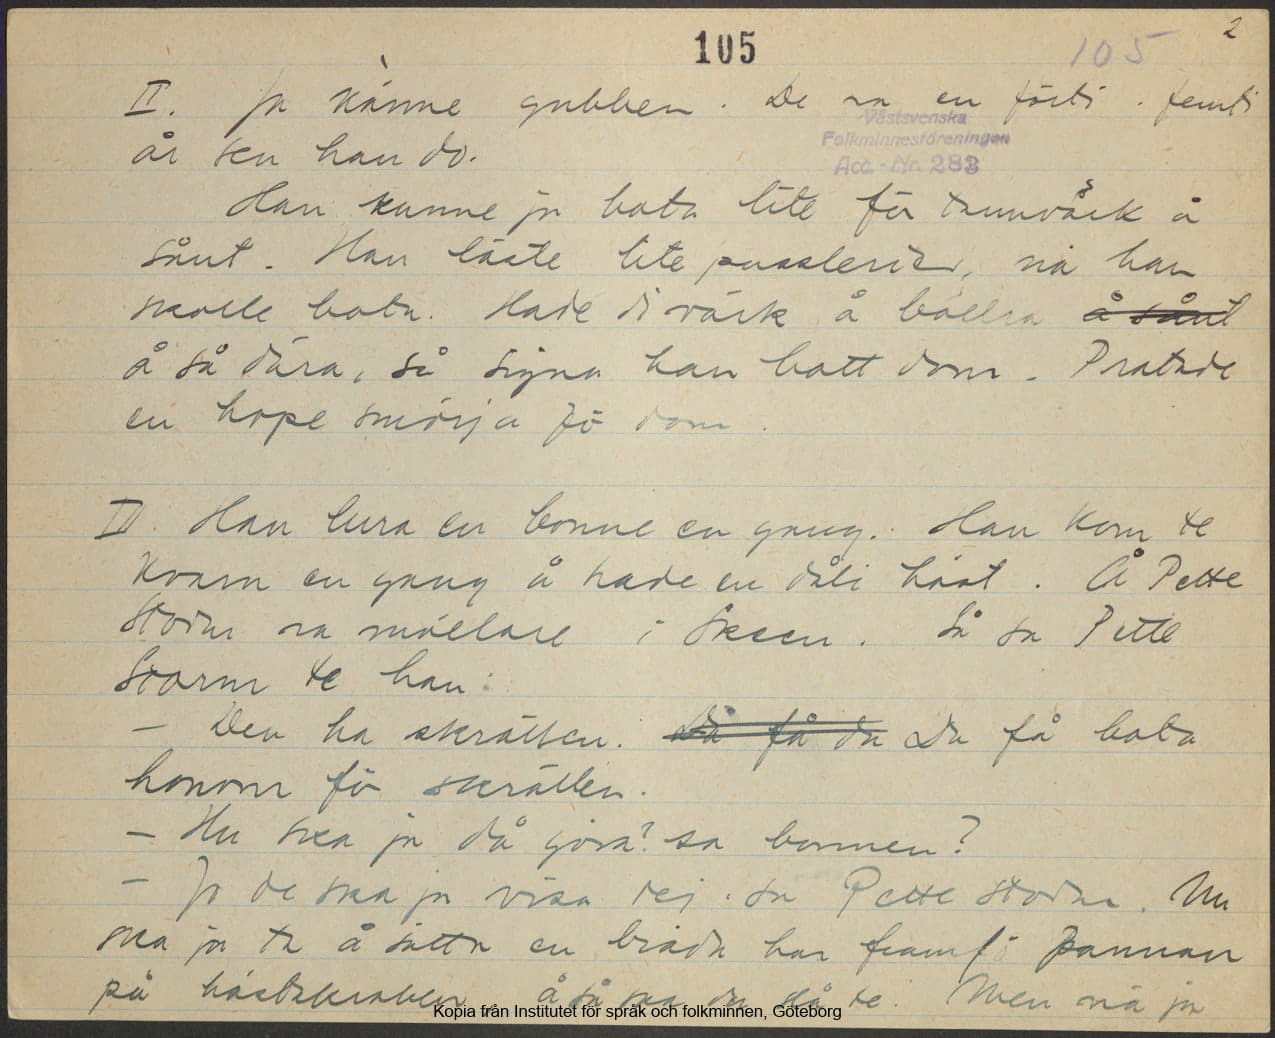 105
105
2
II. Ja känne gubben. De va en förti. femti
år sen han do.
Västsvenska
Folkminnesföreningen
Acc.-Nr. 283
Han kunne ju bota lite för tannvärk å
sånt. Han läste lite pussleri, nä han
skolle bota. Hade di värk å böllra å sånt
å så dära, så signa han batt dom. Pratade
en hope smörja fö dom.
III. Han lura en bonne en gang. Han kom te
kvarn en gang å hade en dåli häst. Å Pette
Storm va möllare i Skeen. Så sa Pette
Storm te han:
– Den ha skråtten. Då få du Du få bota
honom fö skråtten.
– Hu ska ja då göra? sa bonnen?
– Jo de ska ja visa dej. sa Pette Storm. Nu
ska ja ta å sätta en bräda här framfö pannan
på hästskraken å så ska du slå te. Men nä ja
Kopia från Institutet för språk och folkminnen, Göteborg